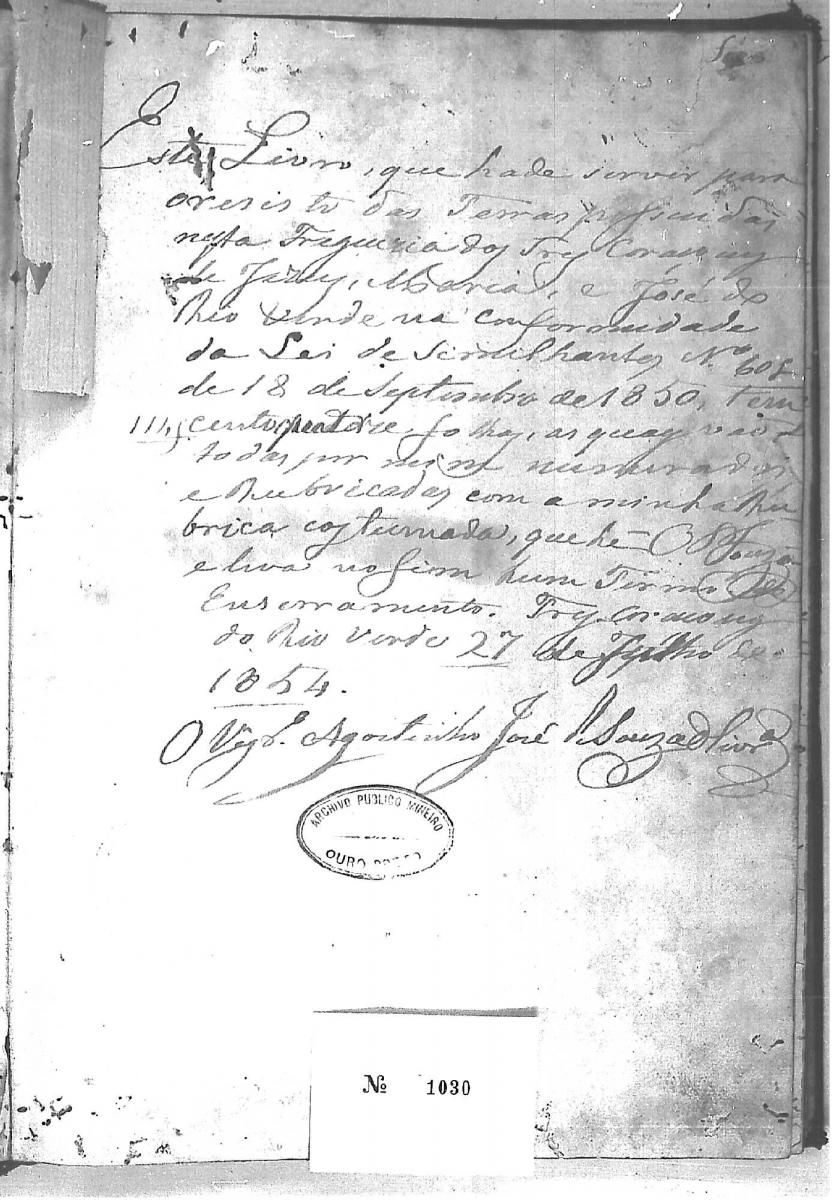 Este Livro, que hade servir para
o resisto das Terras possuidas
nesta Freguezia dos Trez Coraçoens
de Jezus, Maria, e José do
Rio Verde na conformidade
da Lei de Similhantes Nº 601
de 18 de Septembro de 1850, tem
114 cento quatorze folhas, as quaes vão
todas por mim numeradas,
e Rubricadas com a minha Ru
brica costumada, que he = OSouza
e leva no fim hum Termo de
Enserramento. Trez Coraçoens
do Rio Verde 27 de Julho de
1854.
O Vigrº Agostinho José de Souza Olivrª
ARCHIVO PUBLICO MINEIRO
OURO PRETO
Nº 1030